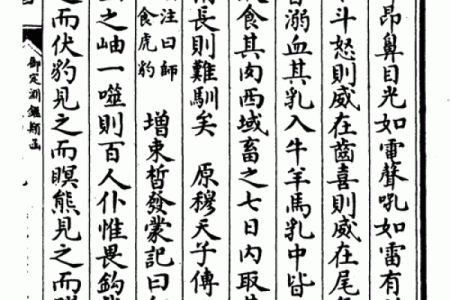 昂鼻目光如電聲吼如雷有
斗怒則威在齒喜則威在尾
溺血其乳入牛羊馬乳中皆
食其肉西域畜之七日內取其
長則難馴矣　原穆天子傳
注曰師
食虎豹
增束皙發蒙記曰
之岫一噬則百人仆惟畏鈎
之而伏豹見之而瞑熊見之而
御定淵鑑類函